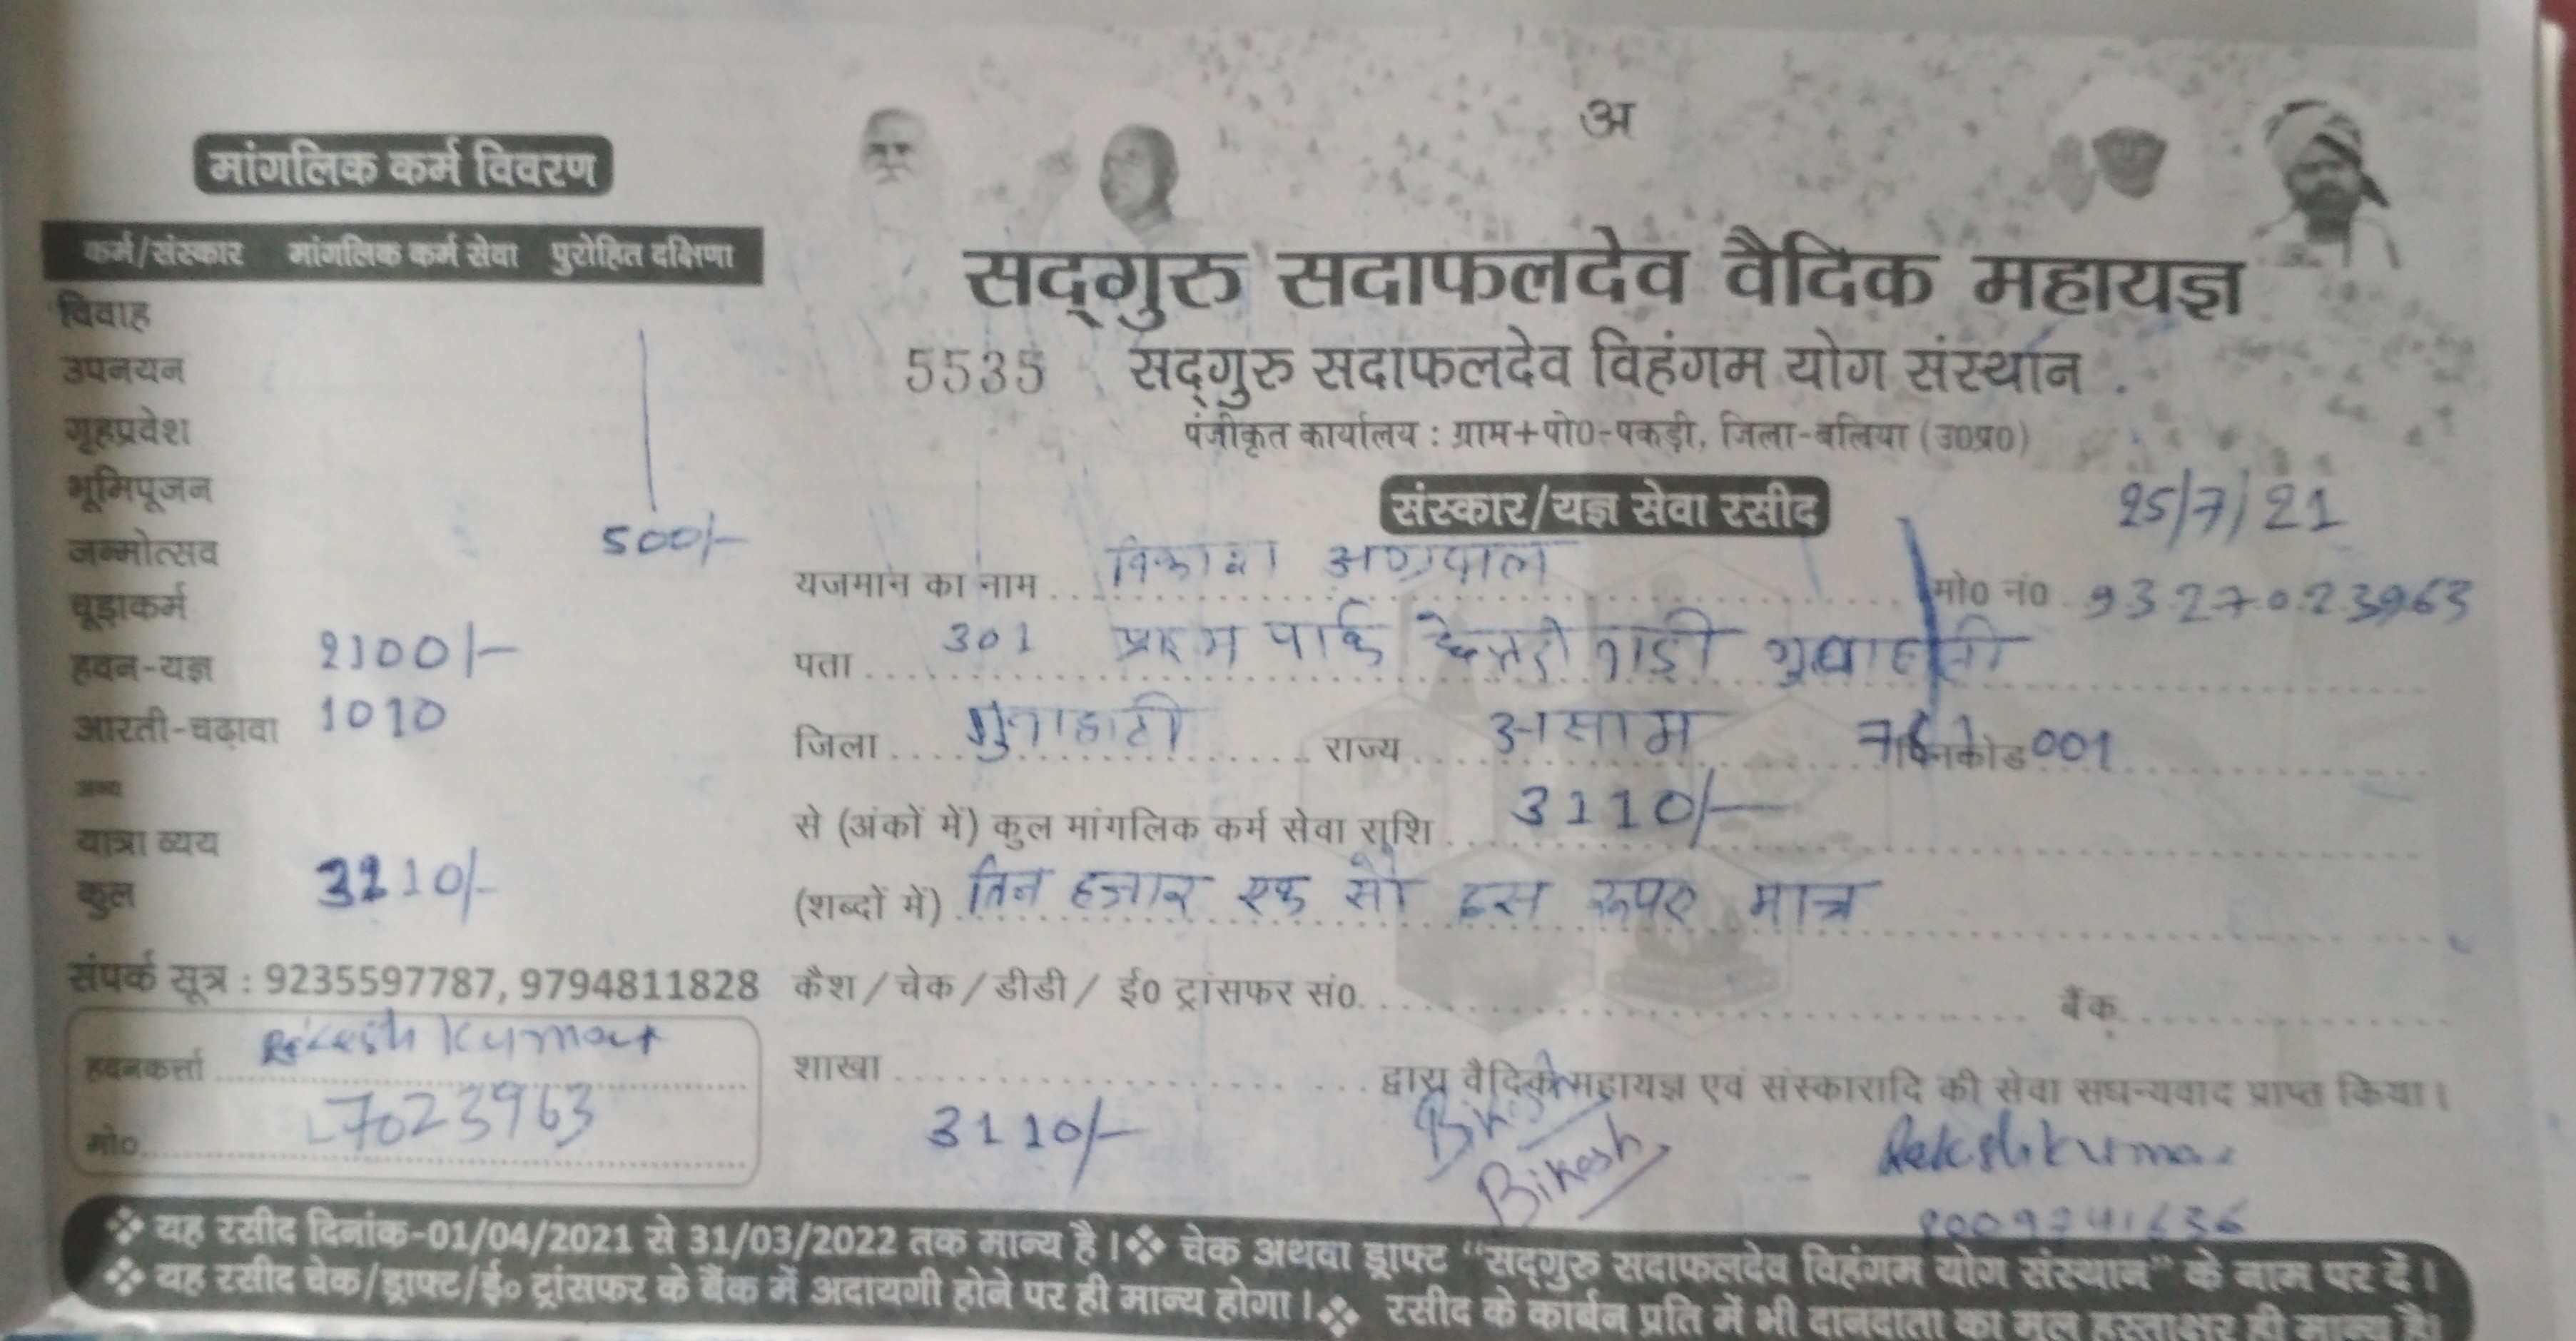 अ
मांगलिक कर्म विवरण
कर्म/संस्कार मांगलिक कर्म सेवा पुरोहित दक्षिणा
विवाह
उपनयन
गृहप्रवेश
भूमिपूजन
जन्मोत्सव 500/-
चूड़ाकर्म
हवन-यज्ञ 2100/-
आरती-चढ़ावा 1010
अन्य
यात्रा व्यय
कुल 3110/-
संपर्क सूत्र : 9235597787, 9794811828
हवनकर्त्ता Rikesh Kumar
मो० 7023963
सद्‌गुरु सदाफलदेव वैदिक महायज्ञ
5535 सद्‌गुरु सदाफलदेव विहंगम योग संस्थान
पंजीकृत कार्यालय : ग्राम+पो0-पकड़ी, जिला-बलिया (उ0प्र0)
संस्कार/यज्ञ सेवा रसीद 25/7/21
यजमान का नाम विकाश अग्रवाल मो0 नं0 9327023963
पता 301 पार्क
जिला गुवाहाटी राज्य असाम पिनकोड 001
से (अंकों में) कुल मांगलिक कर्म सेवा राशि 3110/-
(शब्दों में) तिन हजार एक सौ दस रूपए मात्र
कैश / चेक / डीडी / ई0 ट्रांसफर सं0. बैंक
शाखा द्वारा वैदिक महायज्ञ एवं संस्कारादि की सेवा सधन्यवाद प्राप्त किया।
3110/- Bikash
❖ यह रसीद दिनांक-01/04/2021 से 31/03/2022 तक मान्य है।❖ चेक अथवा ड्राफ्ट “सद्‌गुरु सदाफलदेव विहंगम योग संस्थान” के नाम पर दें।
❖ यह रसीद चेक/ड्राफ्ट/ई० ट्रांसफर के बैंक में अदायगी होने पर ही मान्य होगा।❖ रसीद के कार्बन प्रति में भी दानदाता का मूल हस्ताक्षर ही मान्य है।